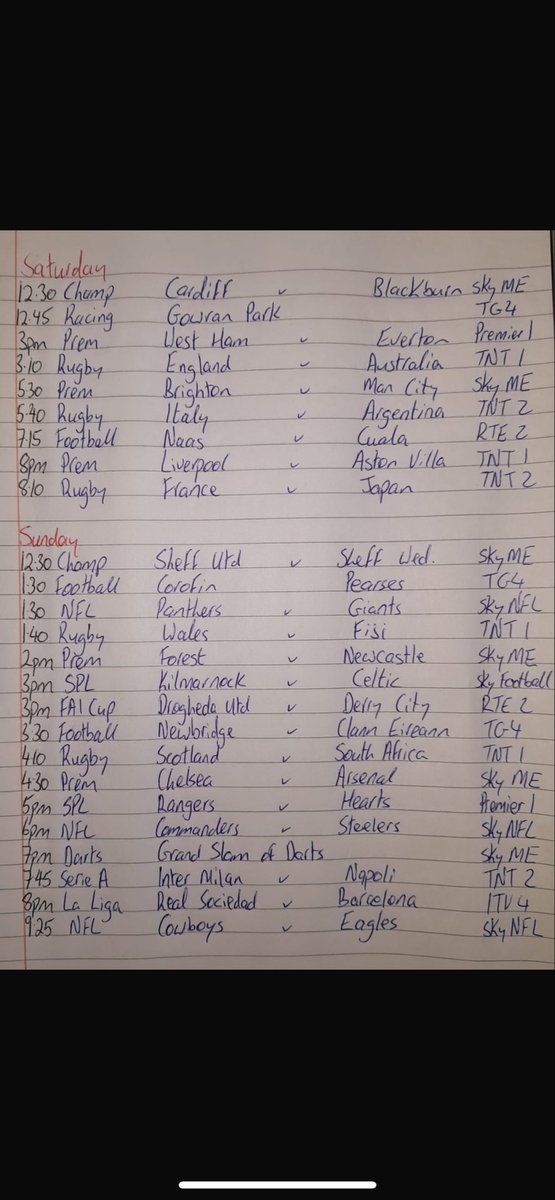 Saturday
12.30 Champ Cardiff v Blackburn Sky ME
12.45 Racing Gowran Park TG4
3pm Prem West Ham v Everton Premier 1
3.10 Rugby England v Australia TNT 1
5.30 Prem Brighton v Man City Sky ME
5.40 Rugby Italy v Argentina TNT 2
7.15 Football Naas v Cuala RTE 2
8pm Prem Liverpool v Aston Villa TNT 1
8.10 Rugby France v Japan TNT 2
Sunday
12.30 Champ Sheff Utd v Sheff Wed. Sky ME
1.30 Football Corofin Pearses TG4
1.30 NFL Panthers v Giants Sky NFL
1.40 Rugby Wales v Fiji TNT 1
2pm Prem Forest v Newcastle Sky ME
3pm SPL Kilmarnock v Celtic Sky Football
3pm FAI Cup Drogheda Utd v Derry City RTE 2
3.30 Football Newbridge v Clann Eireann TG4
4.10 Rugby Scotland v South Africa TNT 1
4.30 Prem Chelsea v Arsenal Sky ME
5pm SPL Rangers v Hearts Premier 1
6pm NFL Commanders v Steelers Sky NFL
7pm Darts Grand Slam of Darts Sky ME
7.45 Serie A Inter Milan v Napoli TNT 2
8pm La Liga Real Sociedad v Barcelona ITV 4
9.25 NFL Cowboys v Eagles Sky NFL